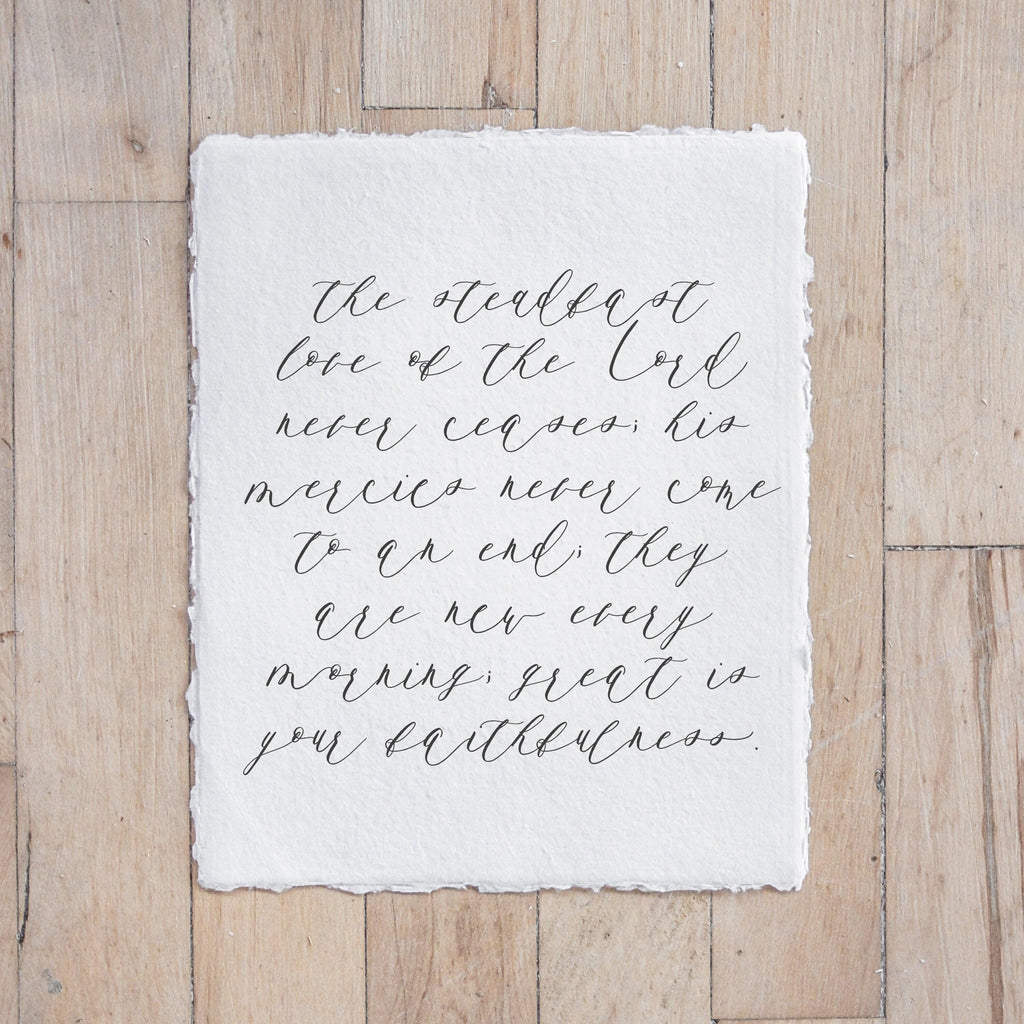 the steadfast
love of the Lord
never ceases; his
mercies never come
to an end; they
are new every
morning; great is
your faithfulness.